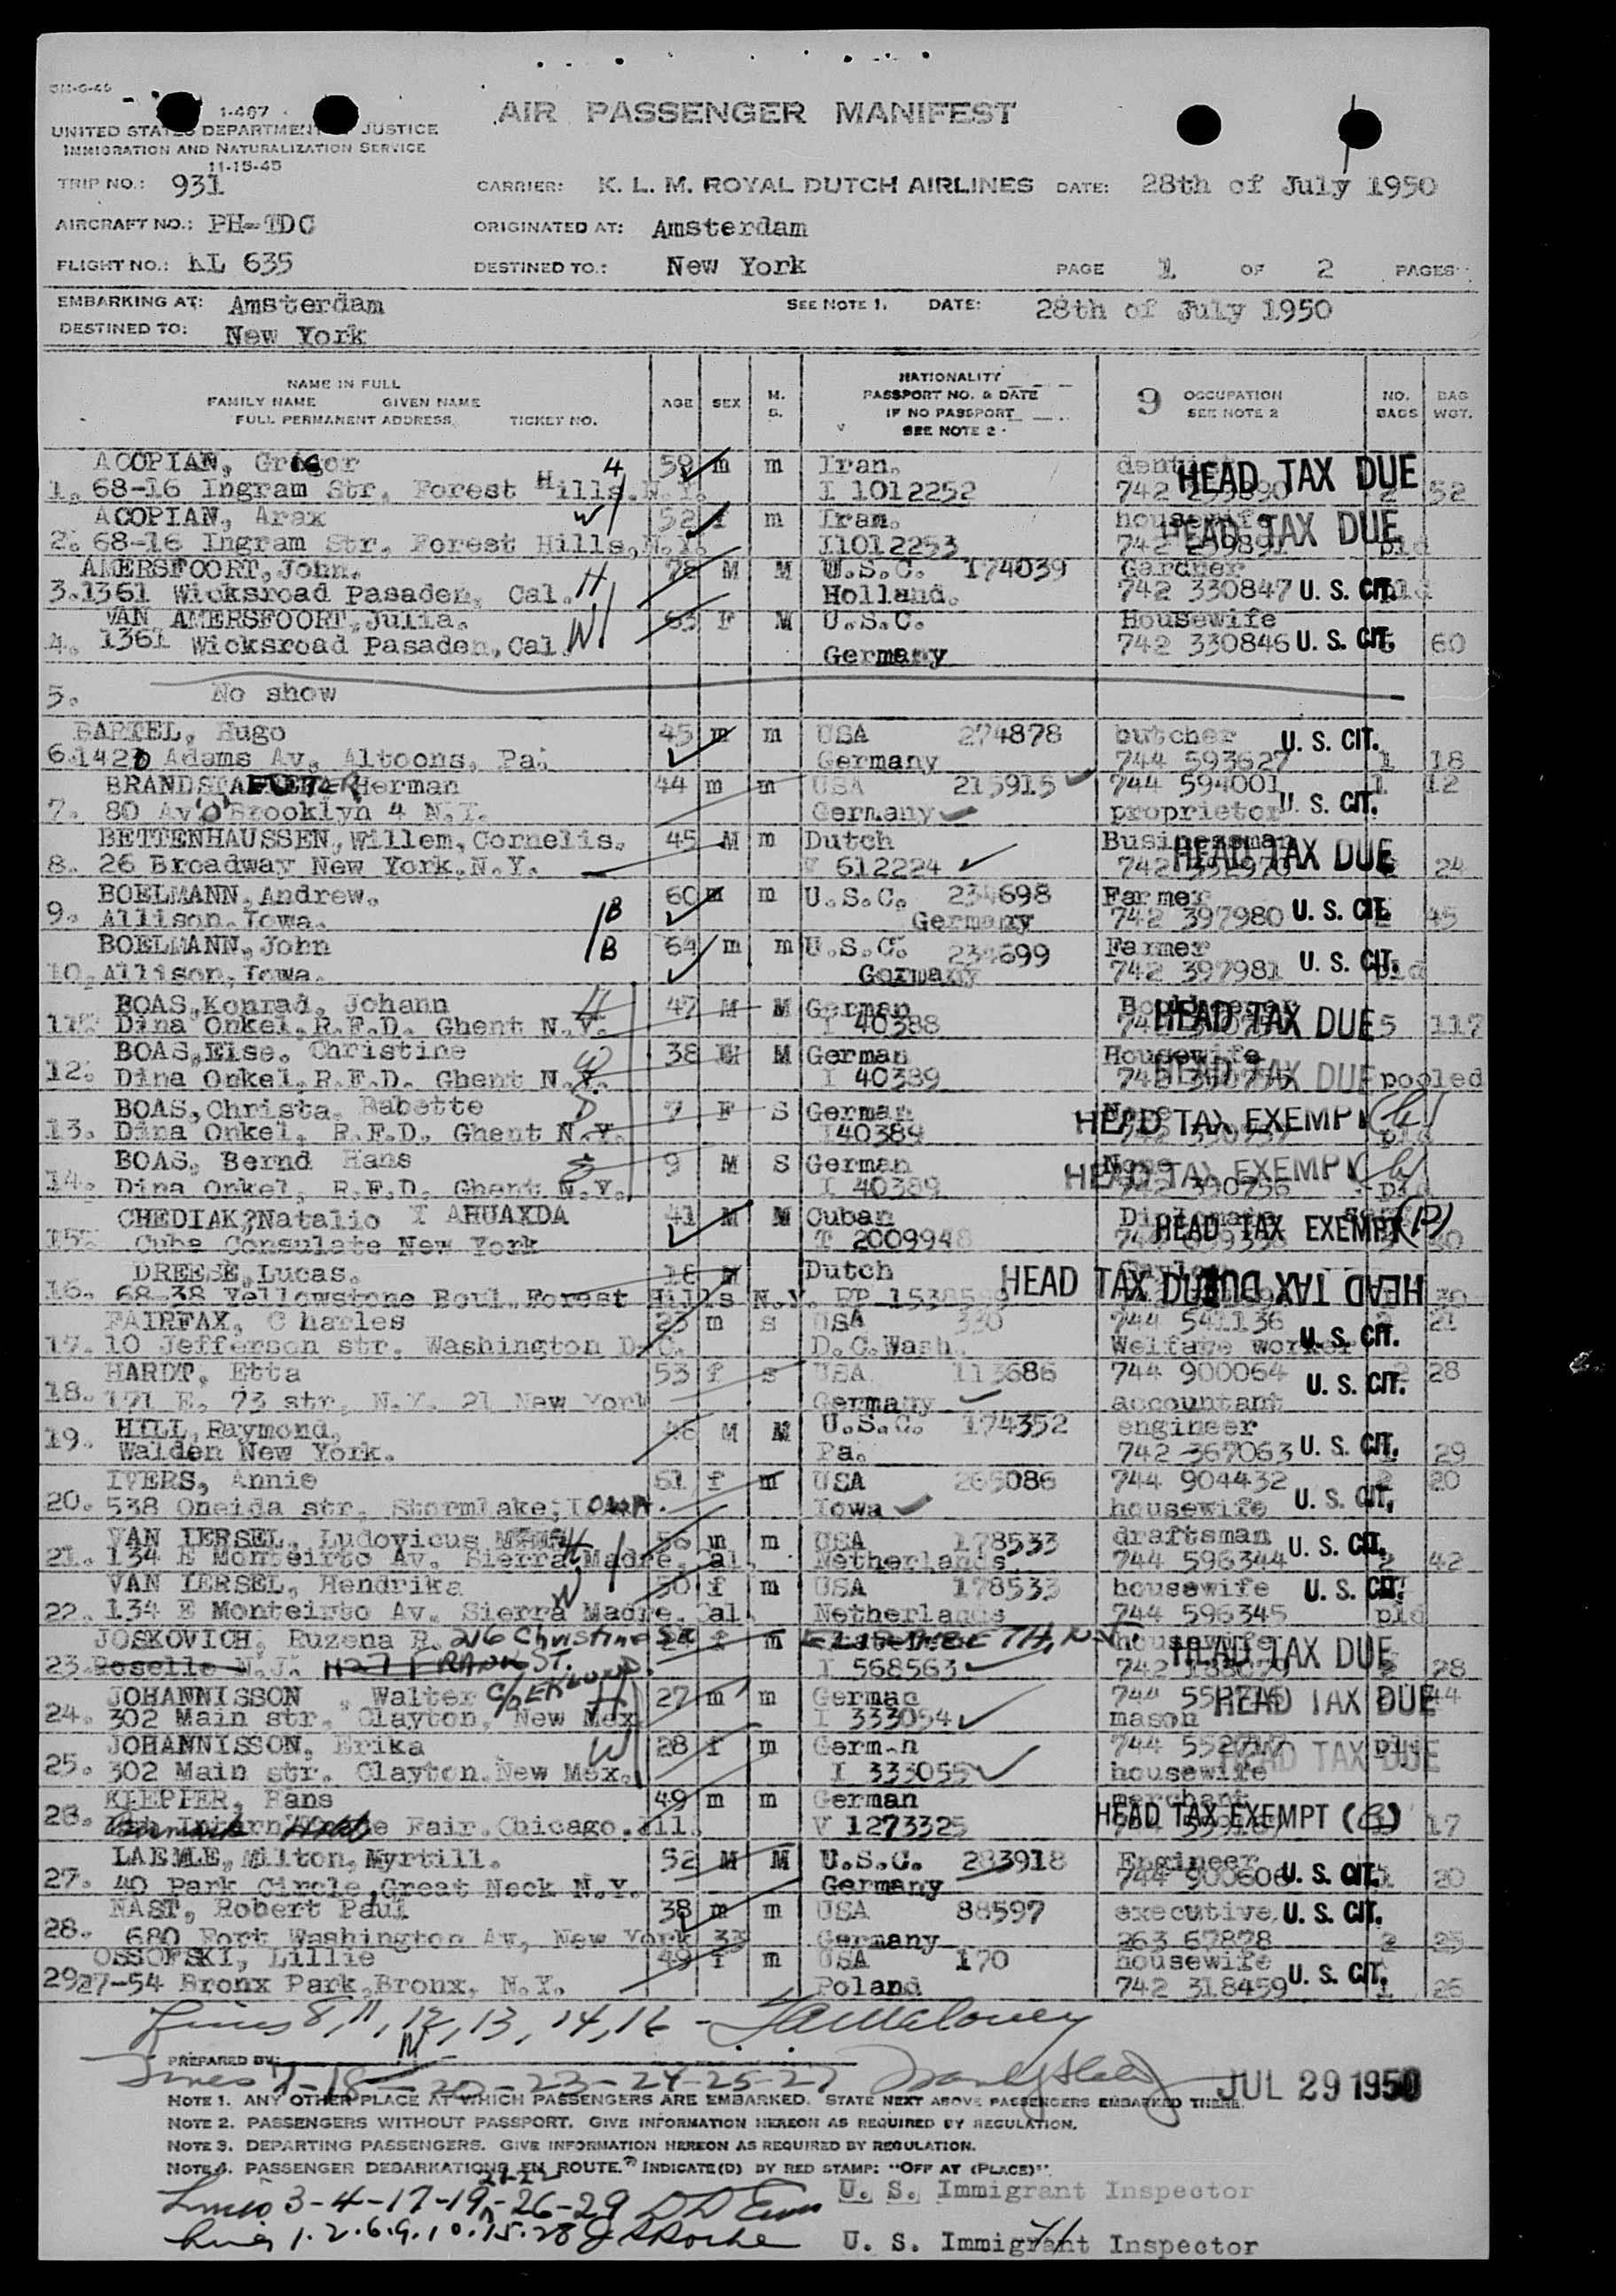 I-467
UNITED STATES DEPARTMENT JUSTICE
IMMIGRATION AND NATURALIZATION SERVICE
11-15-45
AIR PASSENGER MANIFEST
TRIP NO.: 931
CARRIER: K. L. M. ROYAL DUTCH AIRLINES DATE: 28th of July 1950
AIRCRAFT NO.: PH-TDC ORIGINATED AT: Amsterdam
FLIGHT NO.: KL 635 DESTINED TO.: New York PAGE 1 OF 2 PAGES
EMBARKING AT: Amsterdam SEE NOTE 1. DATE: 28th of July 1950
DESTINED TO: New York
NAME IN FULL
FAMILY NAME GIVEN NAME
FULL PERMANENT ADDRESS TICKET NO.
AGE SEX M. S.
NATIONALITY
PASSPORT NO. & DATE
IF NO PASSPORT
SEE NOTE 2
9 OCCUPATION
SEE NOTE 2
NO. BAGS
BAG WGT.
ACOPIAN, Grigor 59 m m Iran. HEAD TAX DUE
1. 68-16 Ingram Str. Forest Hills.N.Y. I 1012252 742 2 52
ACOPIAN, Arax W 52 f m Iran. housewife HEAD TAX DUE
2. 68-16 Ingram Str. Forest Hills,N.Y. I1012253 742 259891 pld
AMERSFOORT, John. H 78 M M U.S.C. 174039 Gardner
3.1361 Wicksroad Pasaden, Cal. Holland. 742 330847 U. S. CIT. pld
VAN AMERSFOORT, Julia. W 63 F M U.S.C. Housewife
4. 1361 Wicksroad Pasaden,Cal. Germany 742 330846 U. S. CIT. 60
5. No show
BARTEL, Hugo 45 m m USA 274878 butcher U. S. CIT.
6.1420 Adams Av, Altoons, Pa. Germany 744 593627 1 18
BRANDSTAETTER Herman 44 m m USA 215915 744 594001 1 12
7. 80 Av 'O' Brooklyn 4 N.Y. Germany proprietor U. S. CIT.
BETTENHAUSSEN, Willem, Cornelis. 45 M m Dutch Businessman HEAD TAX DUE
8. 26 Broadway New York.N.Y. V 612224 24
BOELMANN, Andrew. 60 m m U.S.C. 234698 Farmer
9. Allison.Iowa. B Germany 742 397980 U. S. CIT. 45
BOELMANN, John B 64 m m U.S.C. 234699 Farmer
10. Allison, Iowa. Germany 742 397981 U. S. CIT. pld
BOAS, Konrad, Johann H 47 M M German HEAD TAX DUE
11. Dina Onkel, R.F.D. Ghent N.Y. I 40388 5 117
BOAS, Else. Christine W 38 M German Housewife HEAD TAX DUE
12. Dina Onkel, R.F.D. Ghent N.Y. I 40389 pooled
BOAS, Christa. Babette D 7 F S German None HEAD TAX EXEMPT
13. Dina Onkel, R.F.D. Ghent N.Y. I40389 pld
BOAS, Bernd Hans S 9 M S German None HEAD TAX EXEMPT
14. Dina Onkel, R.F.D. Ghent N.Y. I 40389 742 390756 pld
CHEDIAK, Natalio Y AHUAXDA 41 M M Cuban HEAD TAX EXEMPT (P)
15. Cuba Consulate New York T 2009948
DREESE, Lucas. 18 M Dutch HEAD TAX DUE HEAD TAX DUE
16. 68-38 Yellowstone Boul. Forest Hills N.Y. 30
FAIRFAX, Charles 23 m s USA 330 744 541136 21
17. 10 Jefferson str. Washington D.C. D.C.Wash. Welfare worker U. S. CIT.
HARDT, Etta 53 f s USA 113686 744 900064 2 28
18. 171 E. 73 str. N.Y. 21 New York Germany accountant U. S. CIT.
HILL, Raymond. 48 M M U.S.C. 174352 engineer
19. Walden New York. Pa. 742 367063 U. S. CIT. 29
IVERS, Annie 61 f m USA 265086 744 904432 2 20
20. 538 Oneida str. Stormlake, IOWA. Iowa housewife U. S. CIT.
VAN IERSEL, Ludovicus H 56 m m USA 178533 draftsman U. S. CIT.
21. 134 E Monteirto Av. Sierra Madre. Cal. Netherlands 744 596344 2 42
VAN IERSEL, Hendrika W 50 f m USA 178533 housewife U. S. CIT.
22. 134 E Monteirto Av. Sierra Madre. Cal. Netherlands 744 596345 pld
JOSKOVICH, Ruzena R. 216 Christine St f m ELIZABETH, N.J. housewife HEAD TAX DUE
23. Roselle N.J. FRANK ST. I 568563 28
JOHANNISSON, Walter C/O EKLUND H 27 m m German 744 HEAD TAX DUE 44
24. 302 Main str. Clayton, New Mex. I 333054 mason
JOHANNISSON, Erika W 28 f m Germ-n 744 HEAD TAX DUE
25. 302 Main str. Clayton.New Mex. I 333055 housewife
KIEPFER, Hans 49 m m German merchant
26. Fair.Chicago.Ill. V 1273325 HEAD TAX EXEMPT 17
LAEMLE, Milton, Myrtill. 52 M M U.S.C. 283918 Engineer
27. 40 Park Circle, Great Neck N.Y. Germany 744 900606 U. S. CIT. 1 20
NAST, Robert Paul 38 m m USA 88597 executive U. S. CIT.
28. 680 Fort Washington Av, New York 33 Germany 263 67878 2 25
OSSOFSKI, Lillie 49 f m USA 170 housewife
29. 27-54 Bronx Park.Bronx, N.Y. Poland 742 318459 U. S. CIT. 1 26
Lines 8, 11, 12, 13, 14, 16 -
PREPARED BY:
Lines 7-18-20-23-24-25-27 JUL 29 1950
NOTE 1. ANY OTHER PLACE AT WHICH PASSENGERS ARE EMBARKED. STATE NEXT ABOVE PASSENGERS EMBARKED THERE.
NOTE 2. PASSENGERS WITHOUT PASSPORT. GIVE INFORMATION HEREON AS REQUIRED BY REGULATION.
NOTE 3. DEPARTING PASSENGERS. GIVE INFORMATION HEREON AS REQUIRED BY REGULATION.
NOTE 4. PASSENGER DEBARKATIONS EN ROUTE. INDICATE(D) BY RED STAMP: "OFF AT (PLACE)".
21-22
Lines 3-4-17-19-26-29 U. S. Immigrant Inspector
Lines 1.2.6.9.10.15.28 U. S. Immigrant Inspector